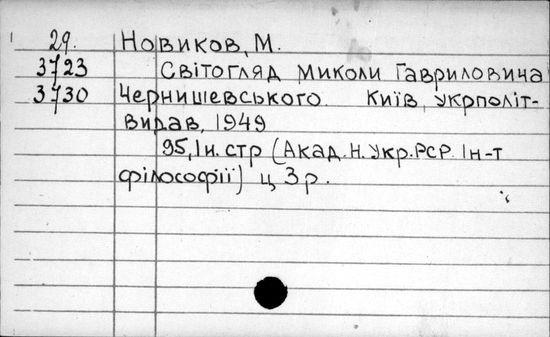 29. Новиков, М.
3723 Світогляд Миколи Гавриловича
3730 Чернишевського. Київ, Укрполіт-
видав, 1949
95, 1 н. стр (Акад. Н. Укр. РСР. Ін-т
філософії) ц 3 р.